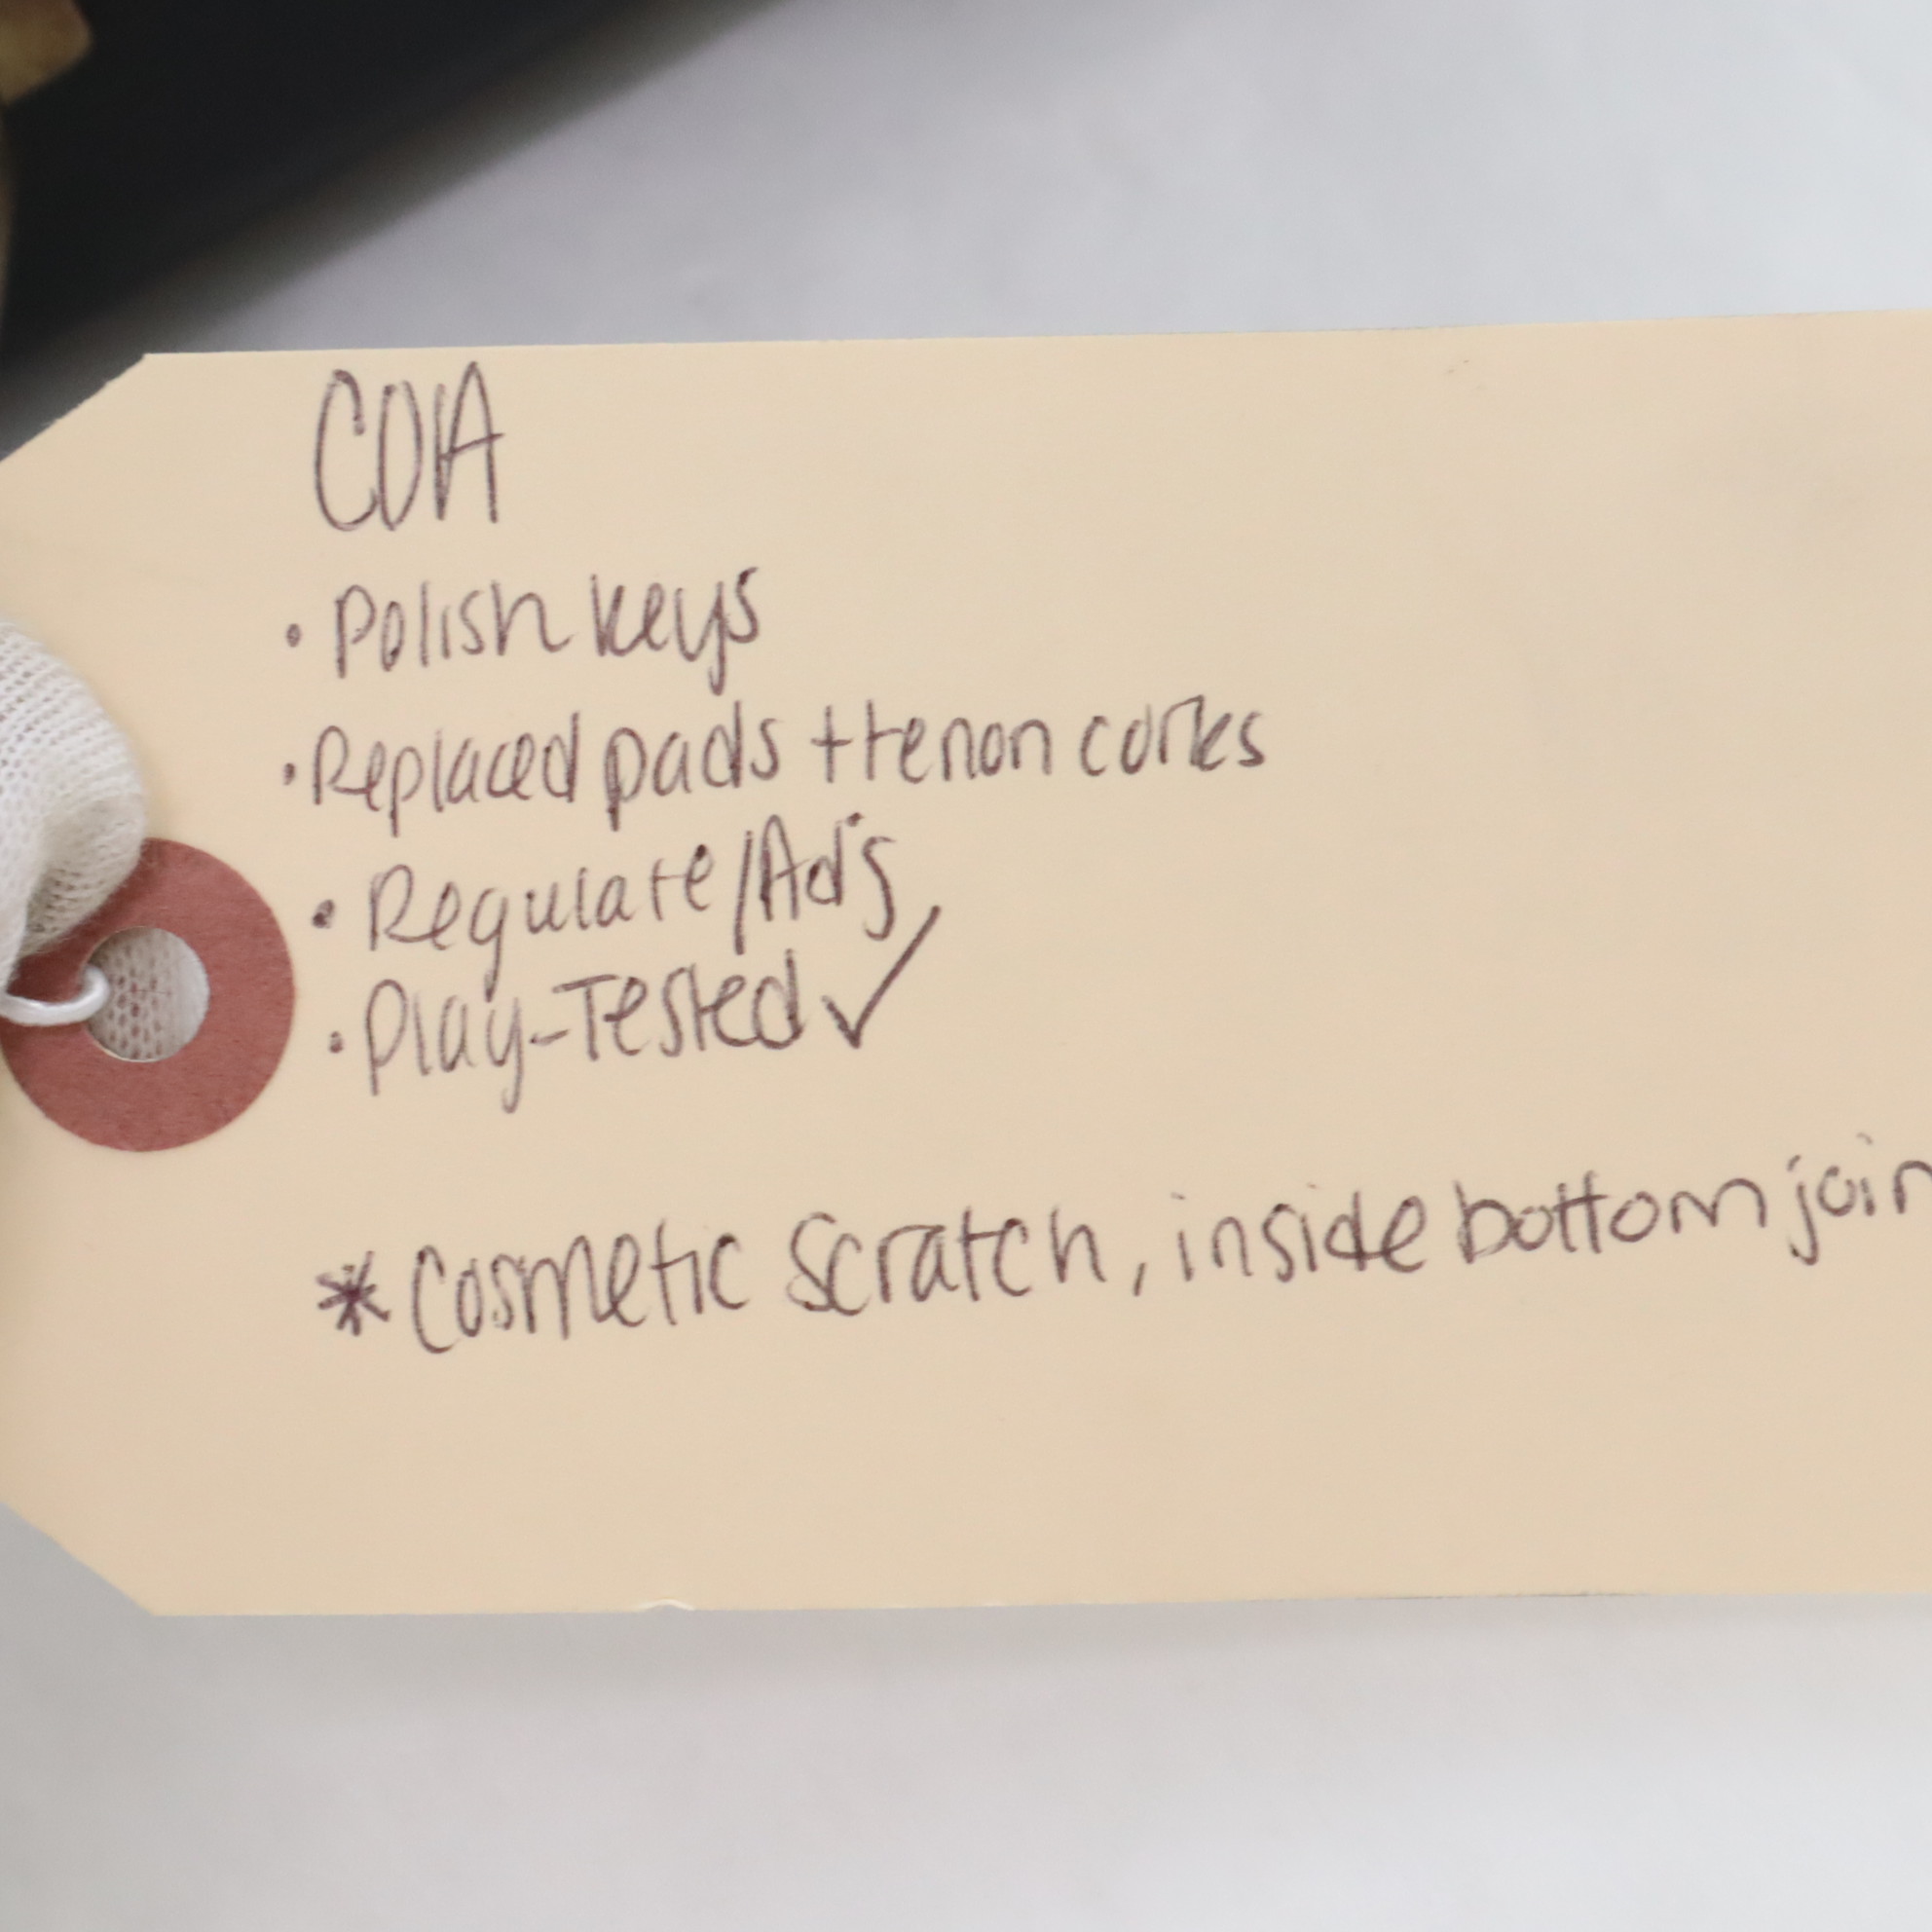 COA
• Polish keys
• Replaced pads + tenon corks
• Regulate/Adj
• Play-Tested ✓
* Cosmetic scratch, inside bottom join